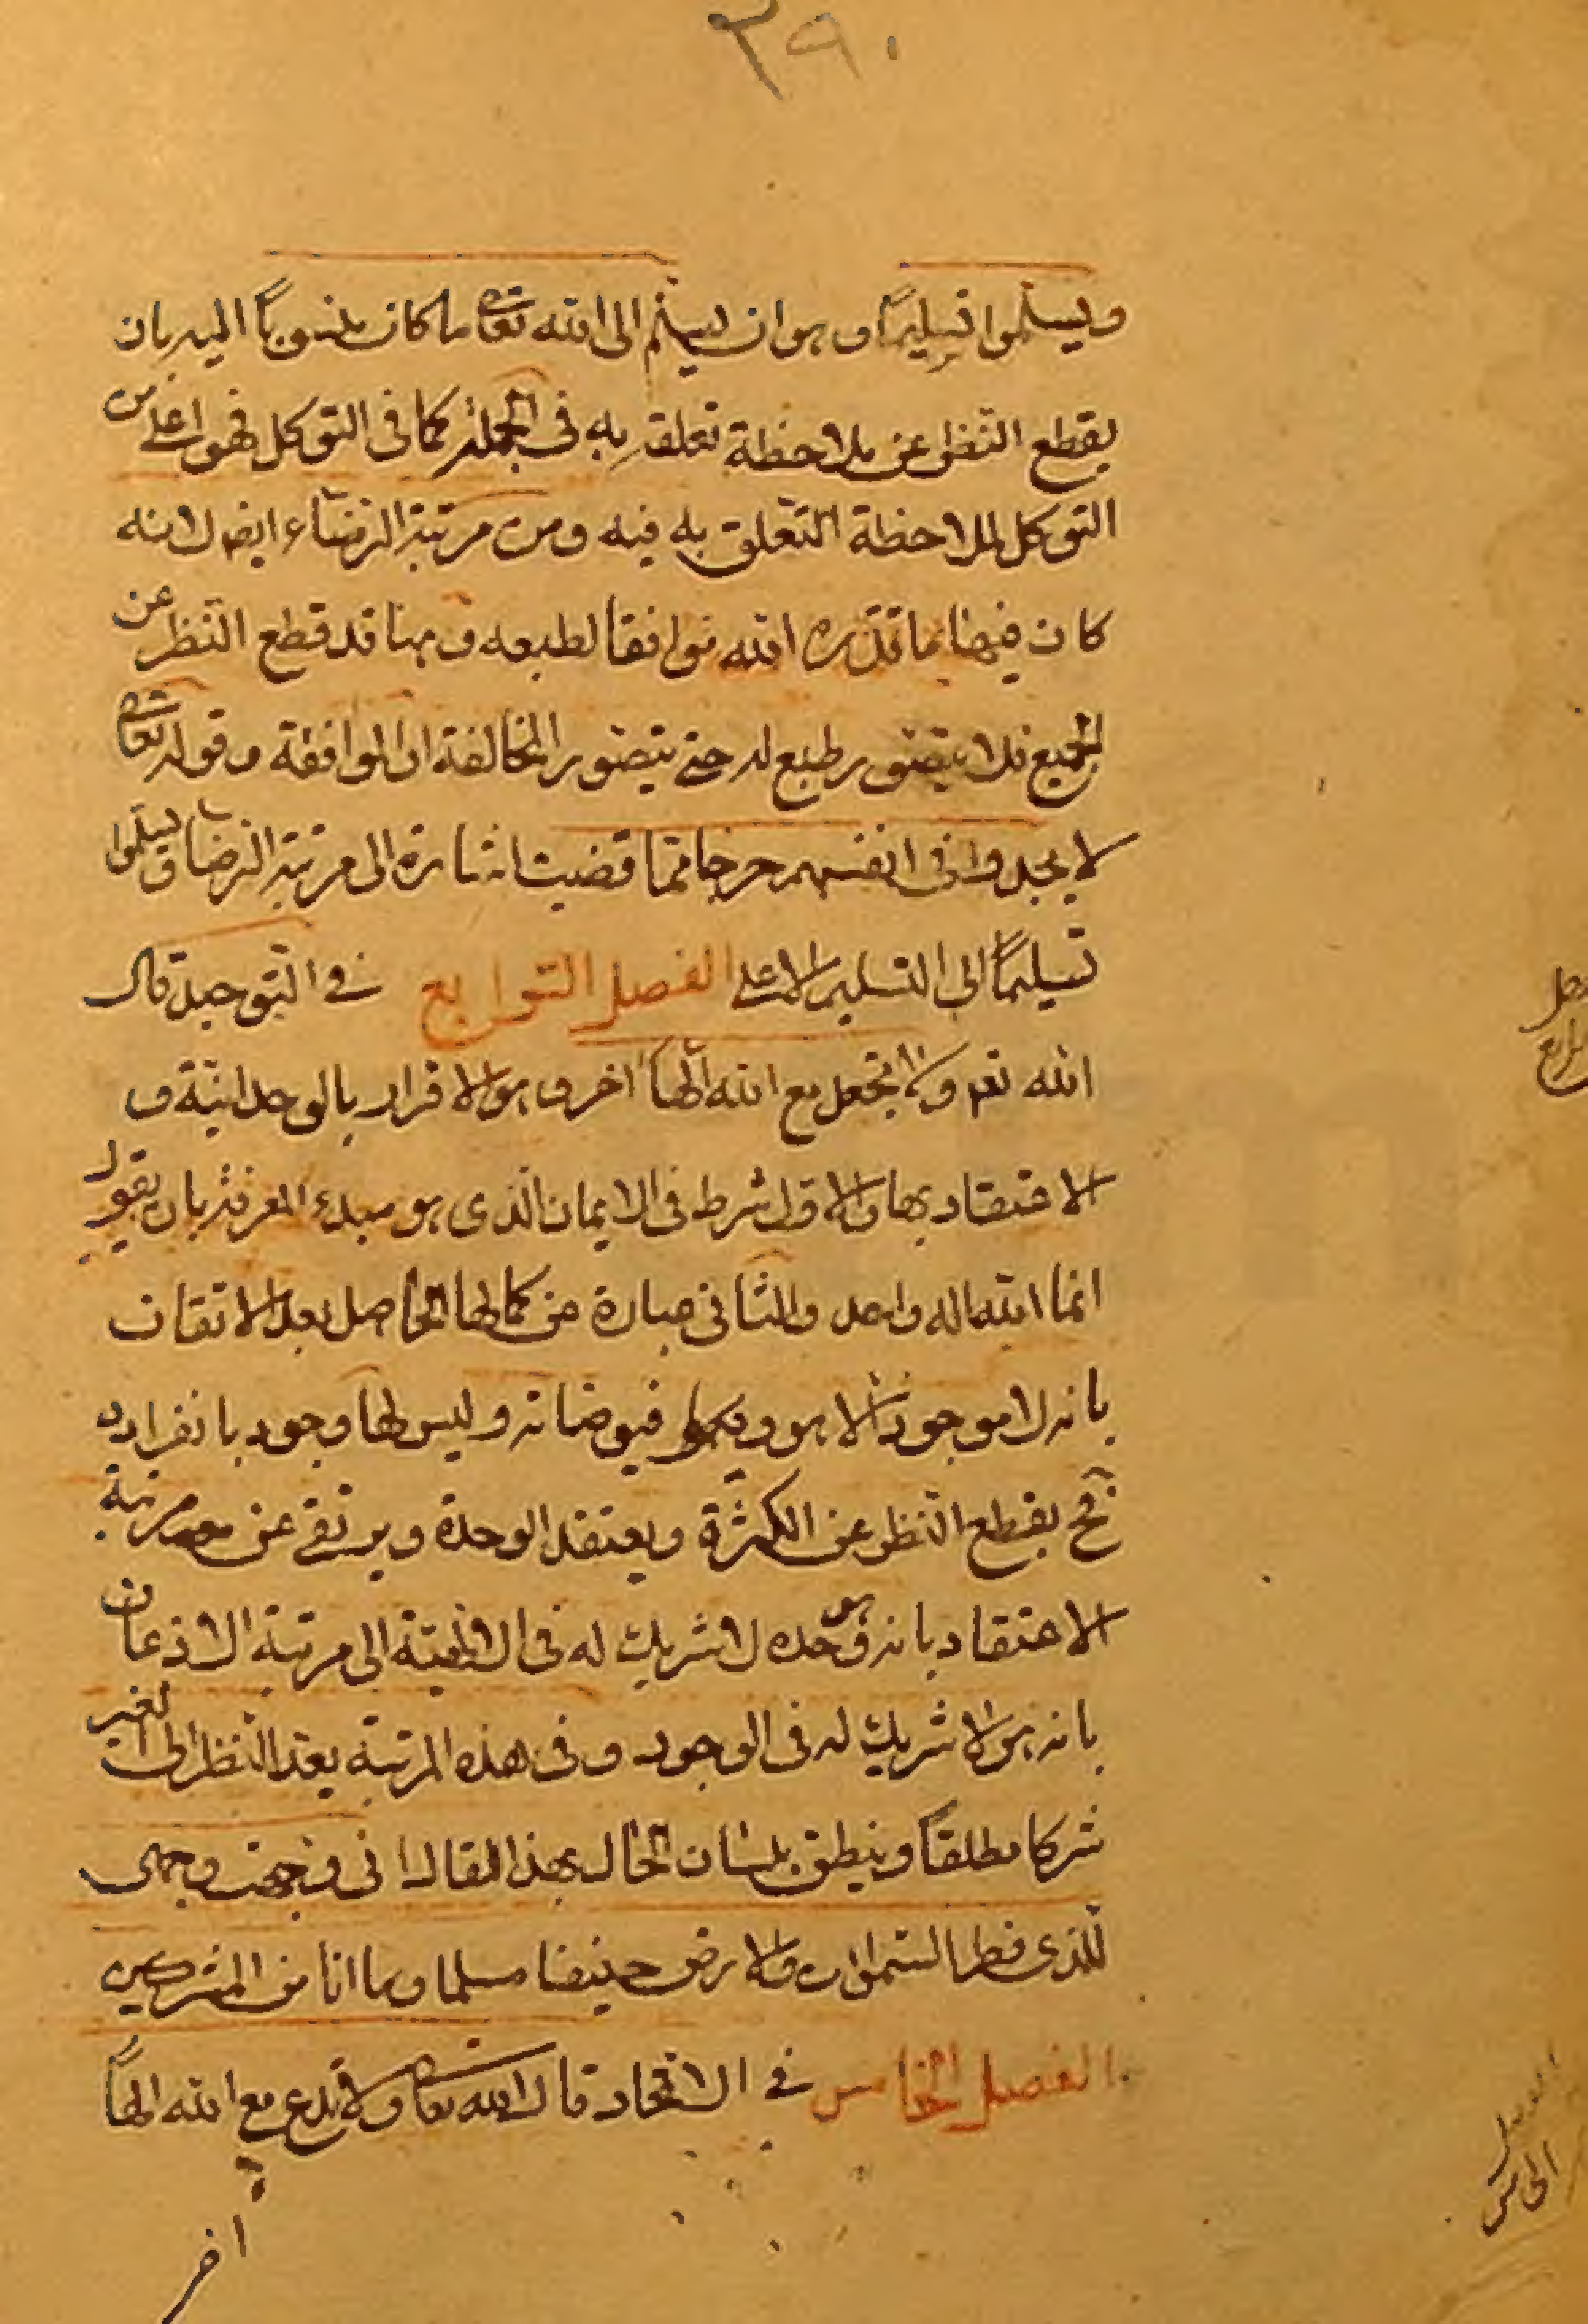 ٣٩٠
ويسلموا تسليماً وهو ان يسلم الى الله تعالى ما كان منسوباً اليه بان
يقطع النظر عن ملاحظة تعلقه به فى الجملة كما فى التوكل فهو اعلى من
التوكل لملاحظة التعلق به فيه ومن مرتبة الرضاء ايضا لانه
كان فيها ما قدره الله موافقا لطبعه وهنا قد قطع النظر عن
الجميع فلا يتصور طبع له حتى يتصور المخالفة او الموافقة وقوله تعالى
لا يجدوا فى انفسهم حرجا مما قضيت اشارة الى مرتبة الرضا ويسلموا
تسليماً الى التسليم الاعلى الفصل الرابع فى التوحيد قال
الله تعم ولا تجعل مع الله الهاً اخر وهو الاقرار بالوحدانية و
الاعتقاد بها والاول شرط فى الايمان الذى هو مبدء المعرفة بان يقول
انما الله اله واحد والثانى عبارة عن كمالها الحاصل بعد الاتقان
بانه لا موجود الا هو و فيوضاته وليس لها وجود بانفراده
فح يقطع النظر عن الكثرة ويعتقد الوحدة ويرتقى عن مرتبة
الاعتقاد بانه هو وحده لا شريك له فى الالهية الى مرتبة الاذعان
بانه هو لا شريك له فى الوجود وفى هذه المرتبة يعد النظر الى الغير
شركا مطلقاً وينطق بلسان الحال بهذا المقال انى وجهت وجهى
للذى فطر السموات والارض حنيفا مسلما وما انا من المشركين
الفصل الخامس فى الاتحاد قال الله تعالى ولا تدع مع الله الهاً
اخر
الفصل
الخامس